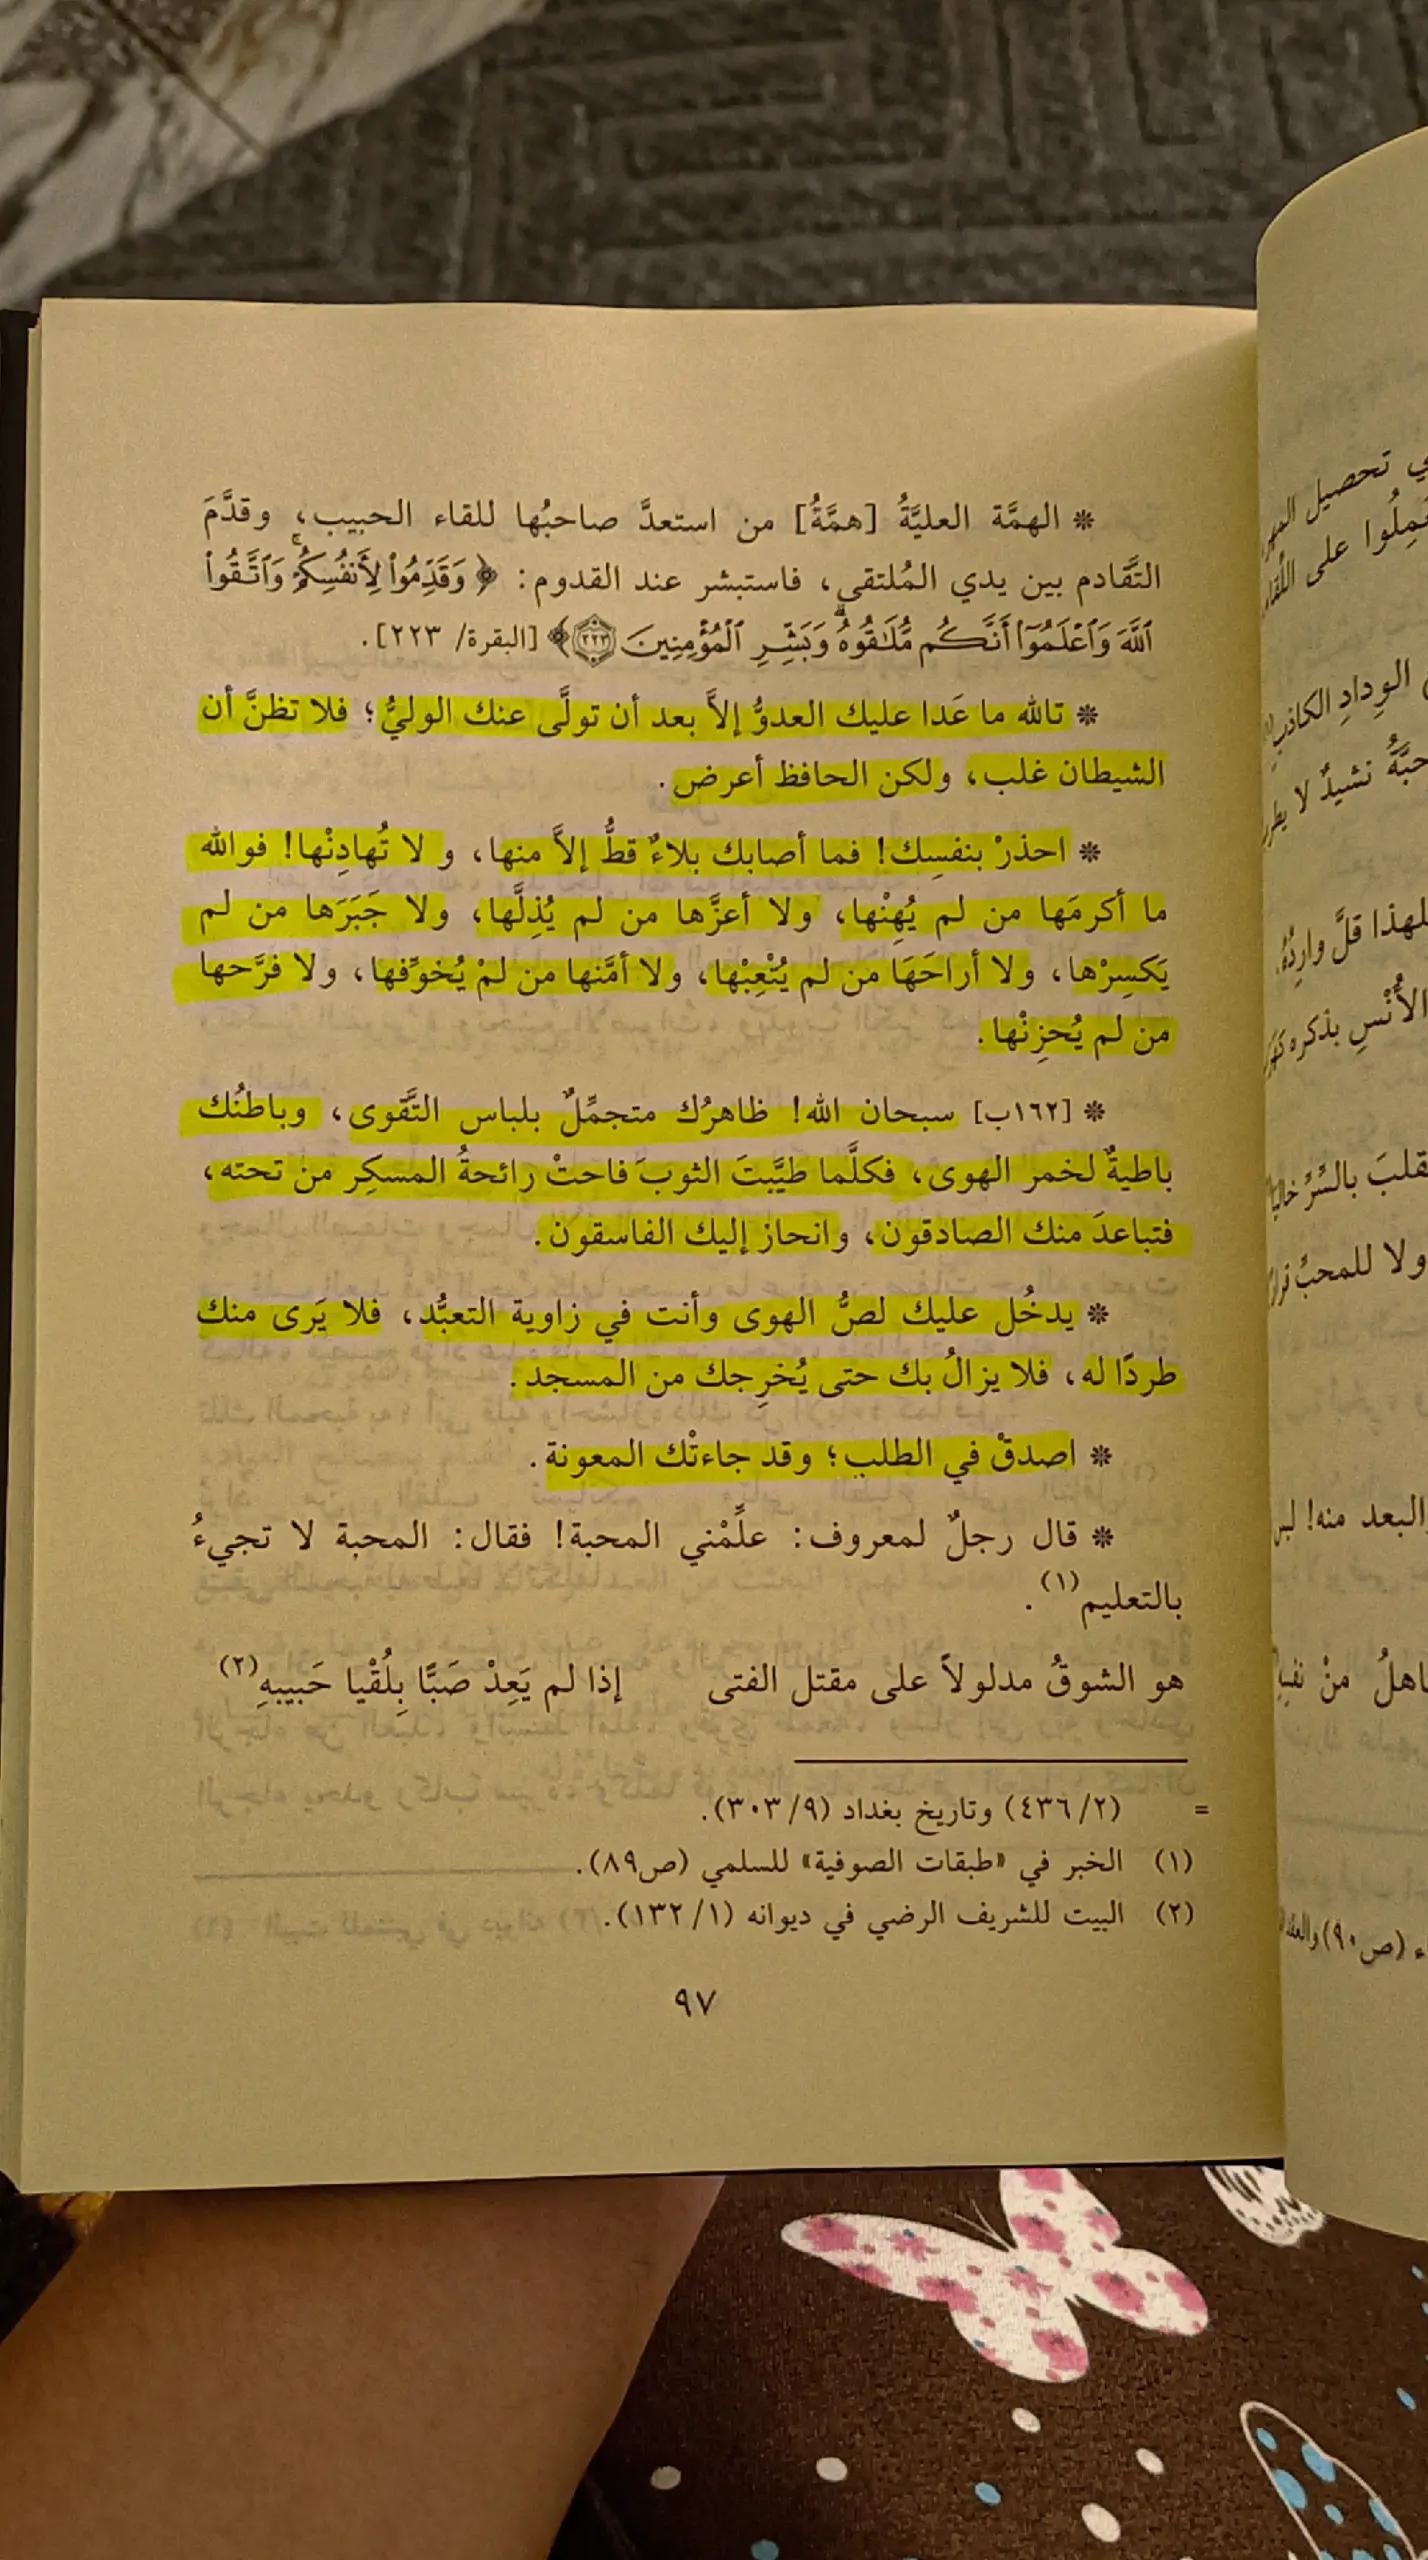 * الهمَّة العليَّةُ [همَّةُ] من استعدَّ صاحبُها للقاء الحبيب، وقدَّمَ
التَّقادم بين يدي المُلتقى، فاستبشر عند القدوم: ﴿وَقَدِّمُوا۟ لِأَنفُسِكُمْ ۚ وَٱتَّقُوا۟
ٱللَّهَ وَٱعْلَمُوٓا۟ أَنَّكُم مُّلَـٰقُوهُ ۗ وَبَشِّرِ ٱلْمُؤْمِنِينَ ٢٢٣﴾ [البقرة/ ٢٢٣].
* تالله ما عَدا عليك العدوُّ إلاَّ بعد أن تولَّى عنك الوليُّ؛ فلا تظنَّ أن
الشيطان غلب، ولكن الحافظ أعرض.
* احذرْ بنفسِك! فما أصابك بلاءٌ قطُّ إلاَّ منها، و لا تُهادِنْها! فوالله
ما أكرمَها من لم يُهِنْها، ولا أعزَّها من لم يُذِلَّها، ولا جَبَرَها من لم
يَكسِرْها، ولا أراحَهَا من لم يُتْعِبْها، ولا أمَّنها من لمْ يُخوِّفها، ولا فرَّحها
من لم يُحزِنْها.
* [١٦٢ب] سبحان الله! ظاهرُك متجمِّلٌ بلباس التَّقوى، وباطنُك
باطيةٌ لخمر الهوى، فكلَّما طيَّبتَ الثوبَ فاحتْ رائحةُ المسكِر من تحته،
فتباعدَ منك الصادقون، وانحاز إليك الفاسقون.
* يدخُل عليك لصُّ الهوى وأنت في زاوية التعبُّد، فلا يَرى منك
طردًا له، فلا يزالُ بك حتى يُخرِجك من المسجد.
* اصدقْ في الطلب؛ وقد جاءتْك المعونة.
* قال رجلٌ لمعروف: علِّمْني المحبة! فقال: المحبة لا تجيءُ
بالتعليم(١).
هو الشوقُ مدلولاً على مقتل الفتى إذا لم يَعِدْ صَبًّا بِلُقْيا حَبيبهِ(٢)
= (٢/ ٤٣٦) وتاريخ بغداد (٩/ ٣٠٣).
(١) الخبر في «طبقات الصوفية» للسلمي (ص٨٩).
(٢) البيت للشريف الرضي في ديوانه (١/ ١٣٢).
٩٧
ي تحصيل
على
الوِدادِ الكاذبِ
نشيدٌ لا
لهذا قلَّ وارِدُهُ
الأُنْسِ بذكره
بالسِّرِّ
ولا للمحبِّ
البعد منه! ليس
منْ
(ص٩٠)